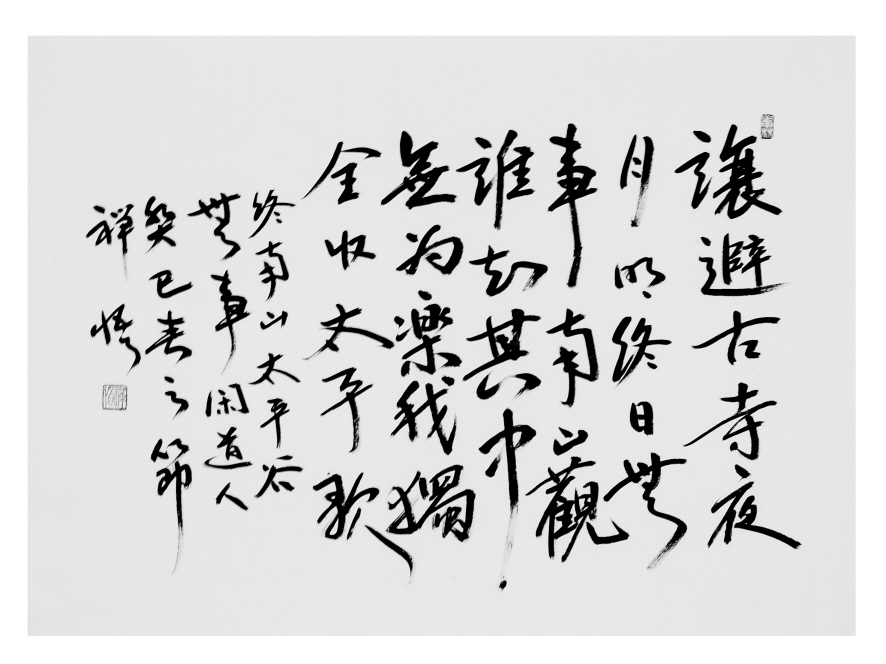 讓避古寺夜
月明终日無
事南山觀
誰知其中
無为樂我獨
全收太平歌
终南山太平谷
無事闲道人
癸巳春之節
禅悟